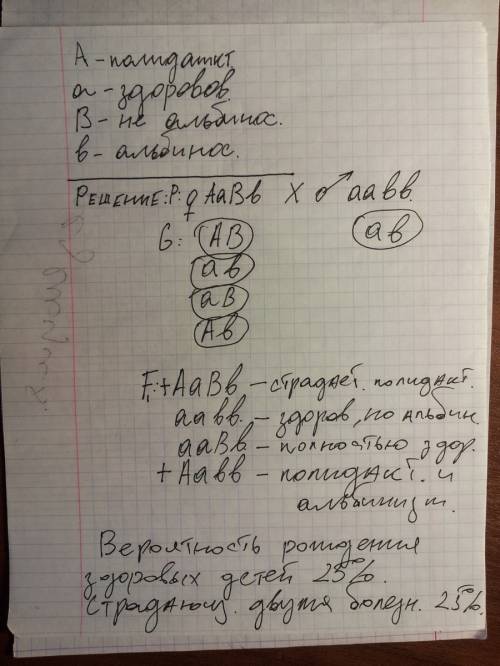 А - полидакт.
а - здоров.
В - не альбинос.
в - альбинос.
Решение: P: ♀ АаВв X ♂ аавв.
G: АВ ав
ав
аВ
Ав
F₁: + АаВв - страдает полидакт.
аавв. - здоров, но альбин.
ааВв - полностью здор.
+ Аавв - полидакт. и
альбинизм.
Вероятность рождения
здоровых детей 25%.
Страдающ. двумя болезн. 25%.